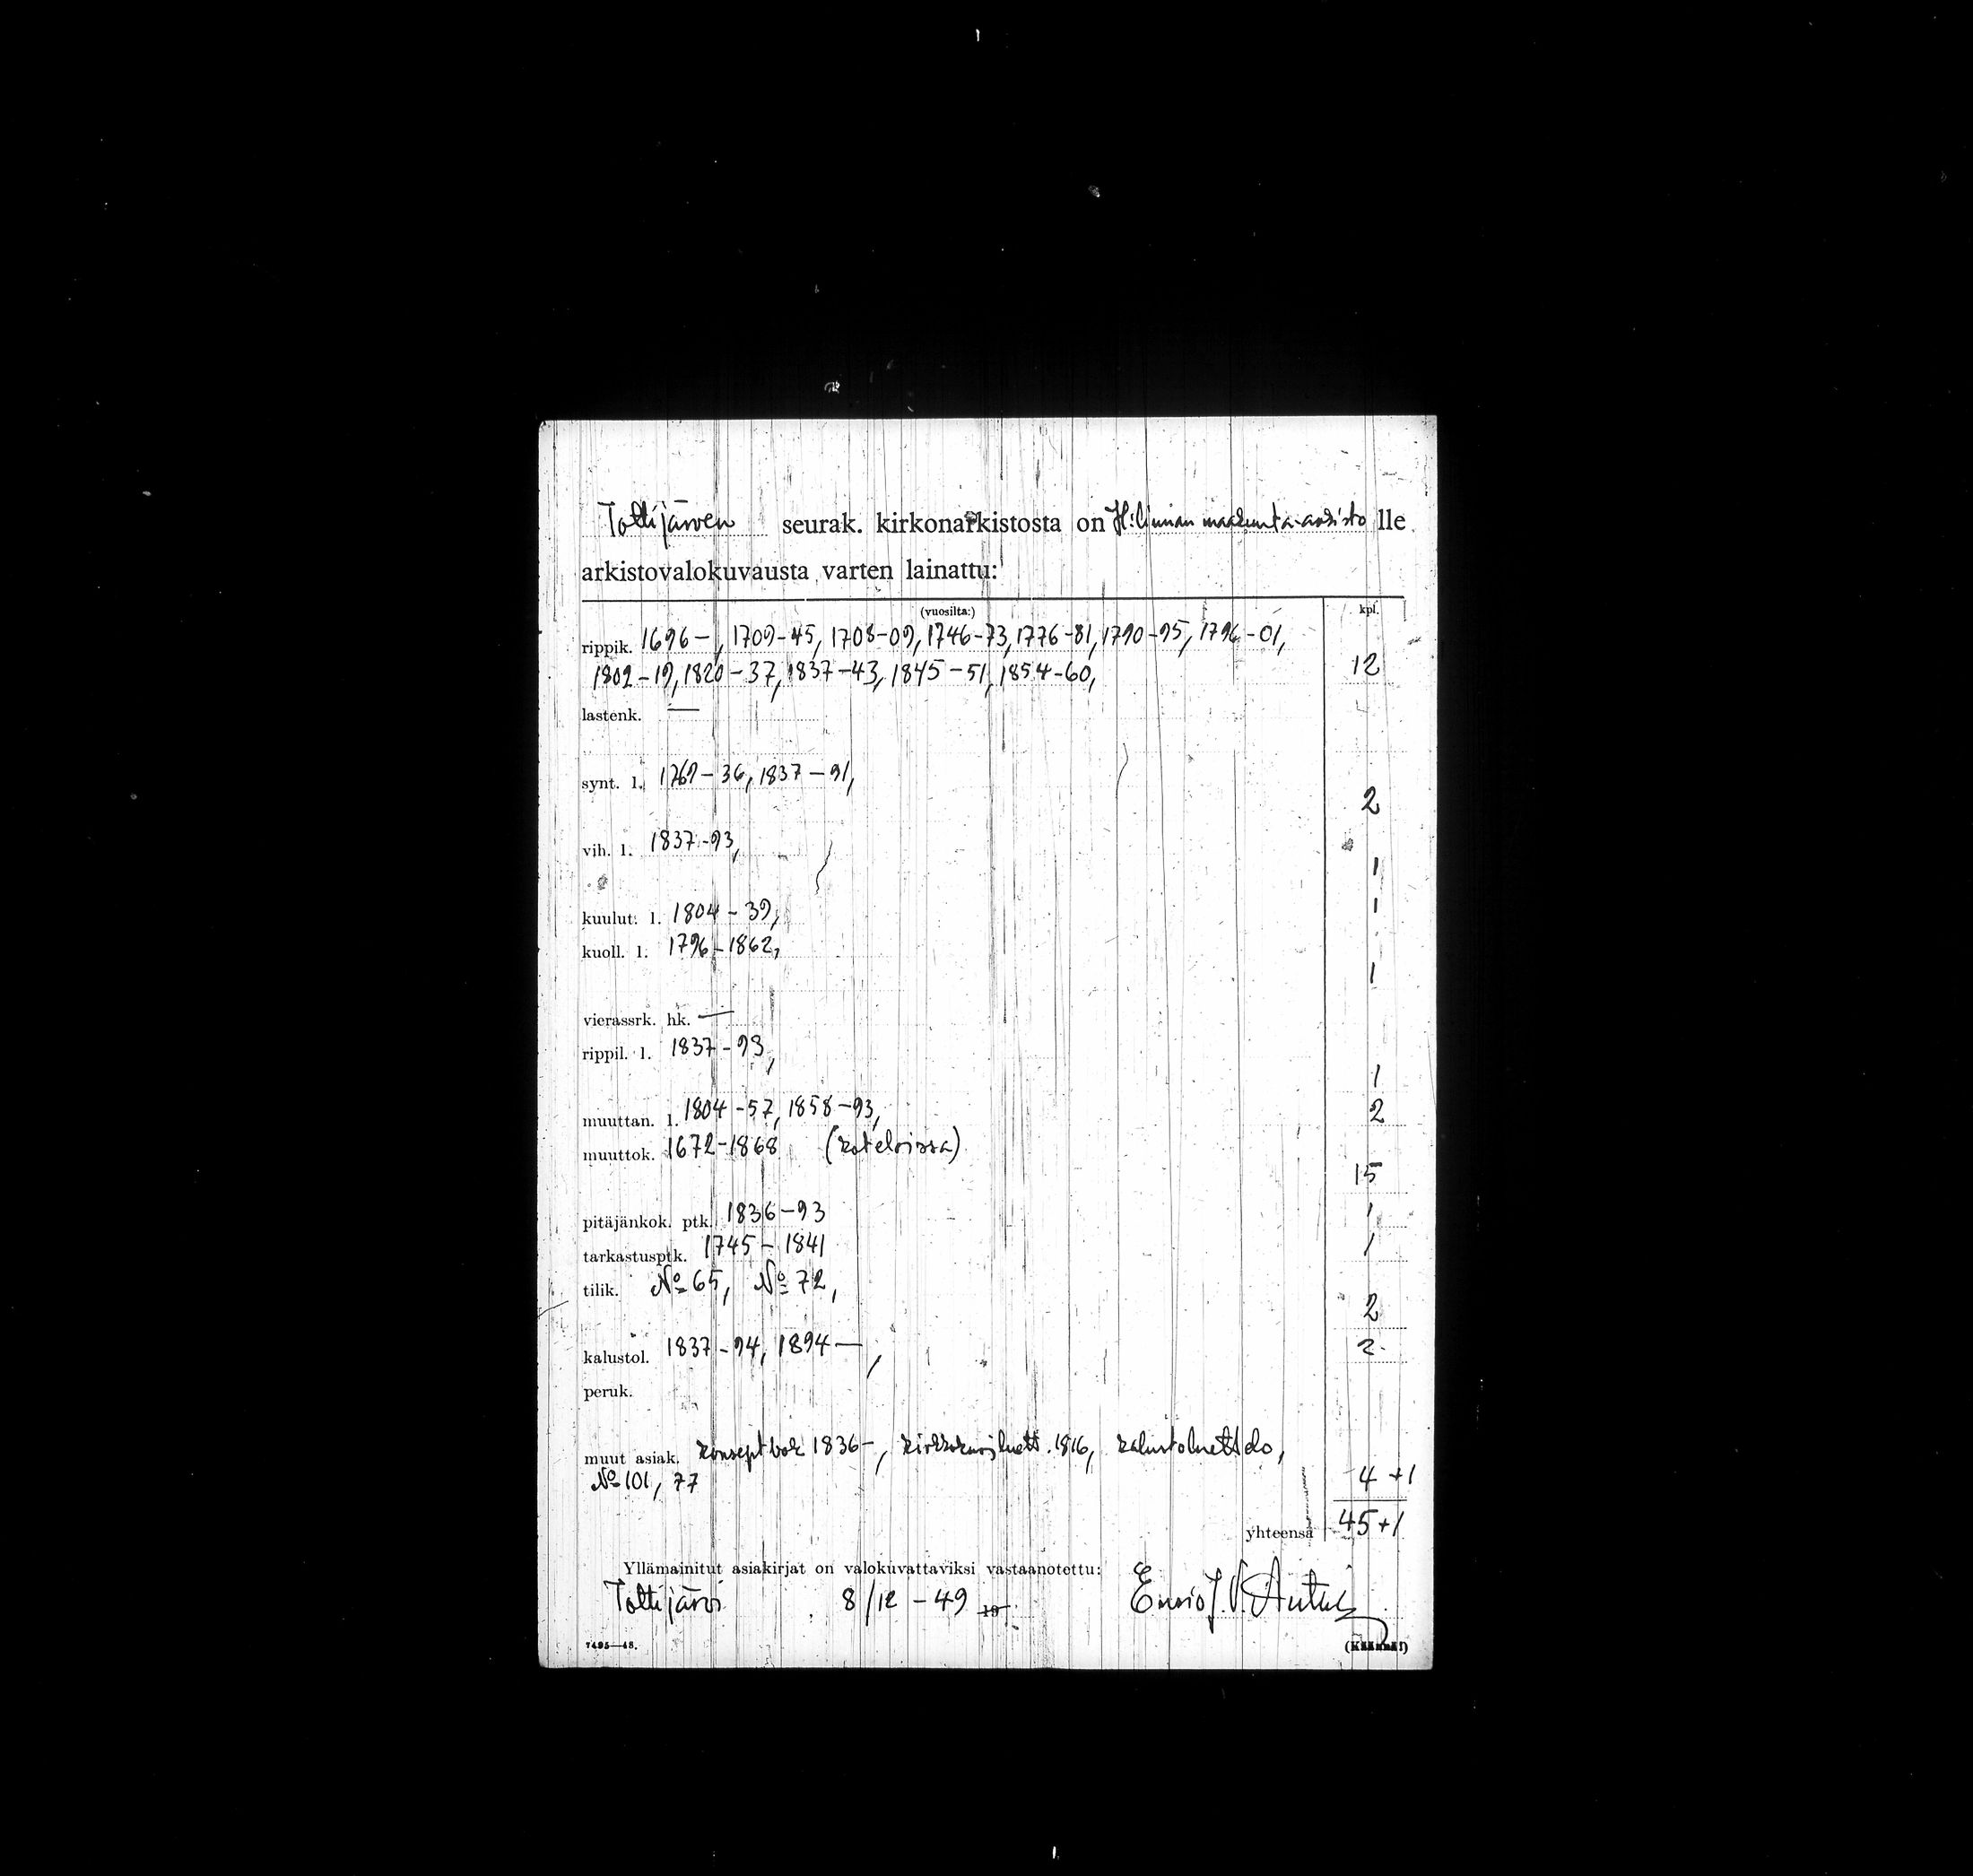 Tottijärven seurak. kirkonarkistosta on H:linnan maakunta-arkisto lle
arkistovalokuvausta varten lainattu:
(vuosilta:) kpl.
rippik. 1696—, 1709-45, 1708-09, 1746-73, 1776-81, 1790-95, 1796-01,
1802-19, 1820-37, 1837-43, 1845-51, 1854-60, 12
lastenk. —
synt. l. 1769-36, 1837-91, 2
vih. l. 1837-93, 1
kuulut. l. 1804-39, 1
kuoll. l. 1796-1862, 1
vierassrk. hk. —
rippil. l. 1837-93, 1
muuttan. l. 1804-57, 1858-93, 2
muuttok. 1672-1868 (koteloissa) 15
pitäjänkok. ptk. 1836-93 1
tarkastusptk. 1745-1841 1
tilik. No 65, No 72, 2
kalustol. 1837-94, 1894—, 2
peruk.
muut asiak. konseptbok 1836-, kirkkokurjluett. 1816, kalustoluettelo,
No 101, 77 4+1
yhteensä 45+1
Yllämainitut asiakirjat on valokuvattaviksi vastaanotettu:
Tottijärvi 8/12-49 19 Ensio J. V.
7495—48. (Käännä!)